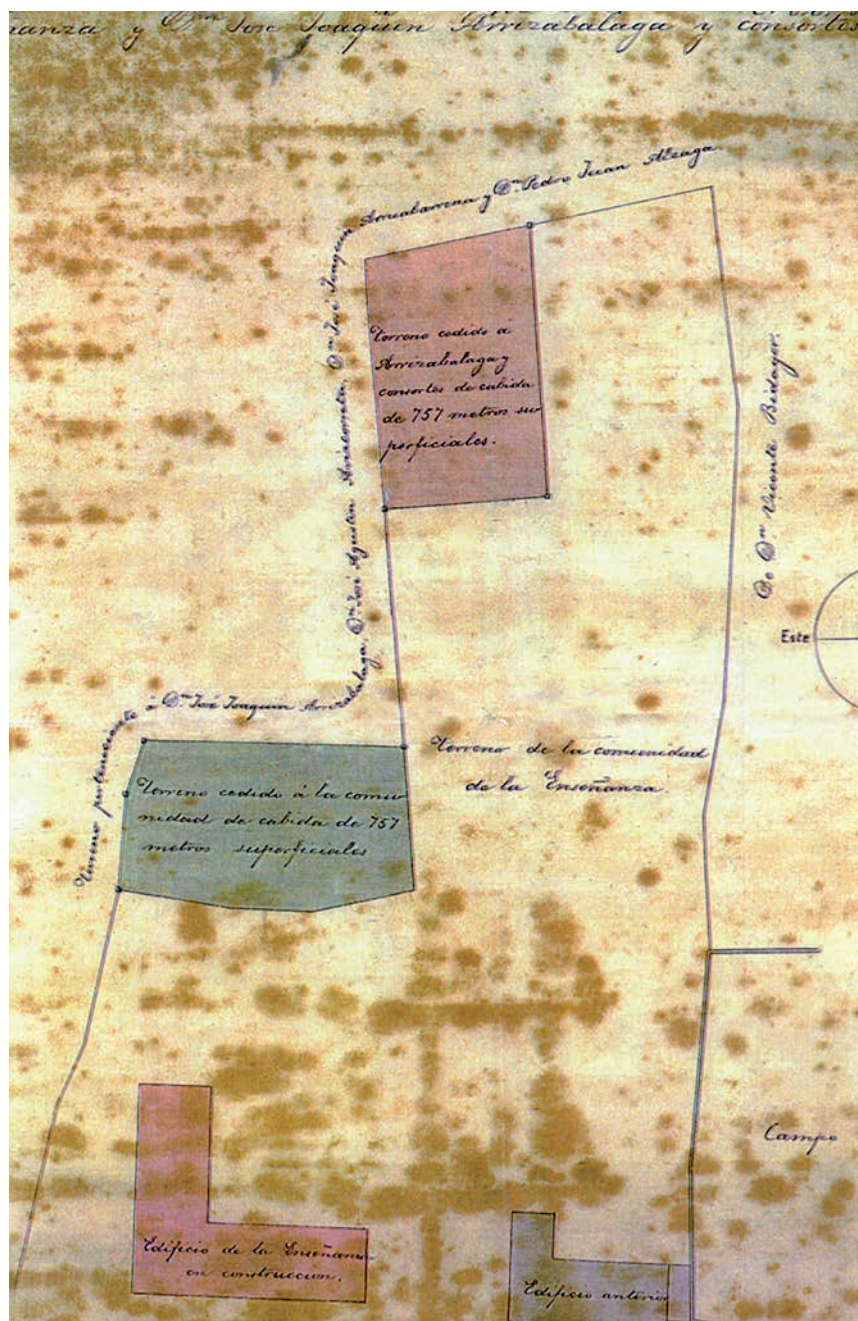 anza y Dⁿ José Joaquin Arrizabalaga y consortes
Terreno perteneciente á Dⁿ José Joaquin Arrizabalaga, Dⁿ José Agustin Arizcorreta, Dⁿ José Joaquin y Dⁿ Pedro Juan Alzaga.
Terreno cedido á
Arrizabalaga y
consortes de cabida
de 757 metros su
perficiales.
De Dⁿ Vicente Bidagor.
Este
Terreno de la comunidad
de la Enseñanza.
Terreno cedido á la comu
nidad de cabida de 757
metros superficiales
Campo
Edificio de la Enseñanza
en construccion.
Edificio anterior